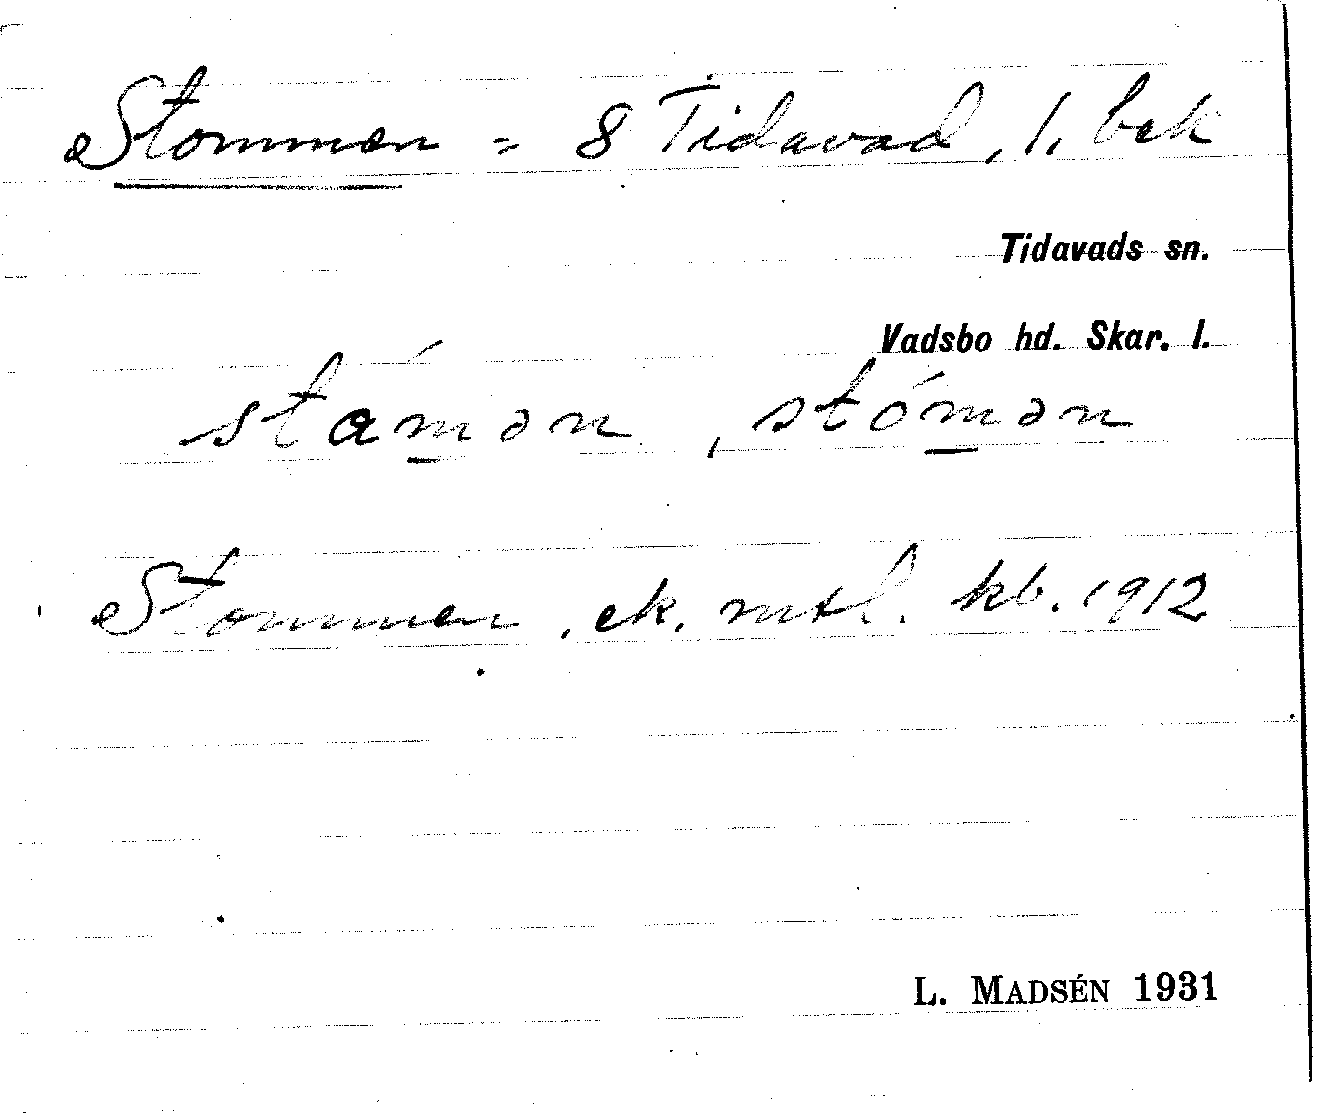 Stommen = 8 Tidavad, 1, bek
Tidavads sn.
Vadsbo hd. Skar. l.
stámən, stómən
Stommen, ek. mtl. kb. 1912
L. MADSÉN 1931